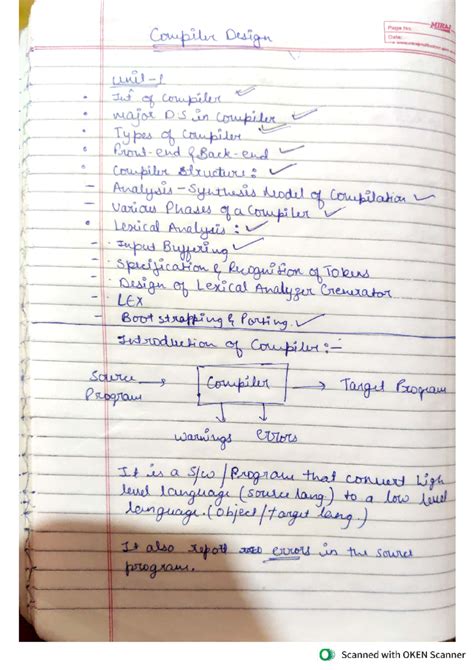 Page No.
Date:
Compiler Design
Unit-1
• Int of Compiler ✓
• major D.S in Compiler ✓
• Types of Compiler ✓
• Front-end & Back-end ✓
• Compiler Structure: ✓
- Analysis - Synthesis Model of Compilation ✓
- Various Phases of a Compiler ✓
• Lexical Analysis: ✓
- Input Buffering ✓
- Specification & Recognition of Tokens
- Design of Lexical Analyzer Generator
- LEX
- Boot strapping & Porting. ✓
Introduction of Compiler:-
Source Program → Compiler → Target Program
warnings errors
It is a S/w / Program that convert high
level language (source lang) to a low level
language. (object/target lang.)
It also report errors in the source
program.
Scanned with OKEN Scanner